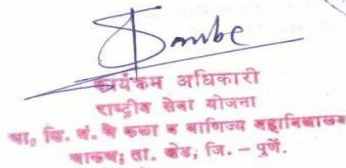 कार्यक्रम अधिकारी
राष्ट्रीय सेवा योजना
कला व वाणिज्य महाविद्यालय
चाकण, ता. खेड, जि. - पुणे.